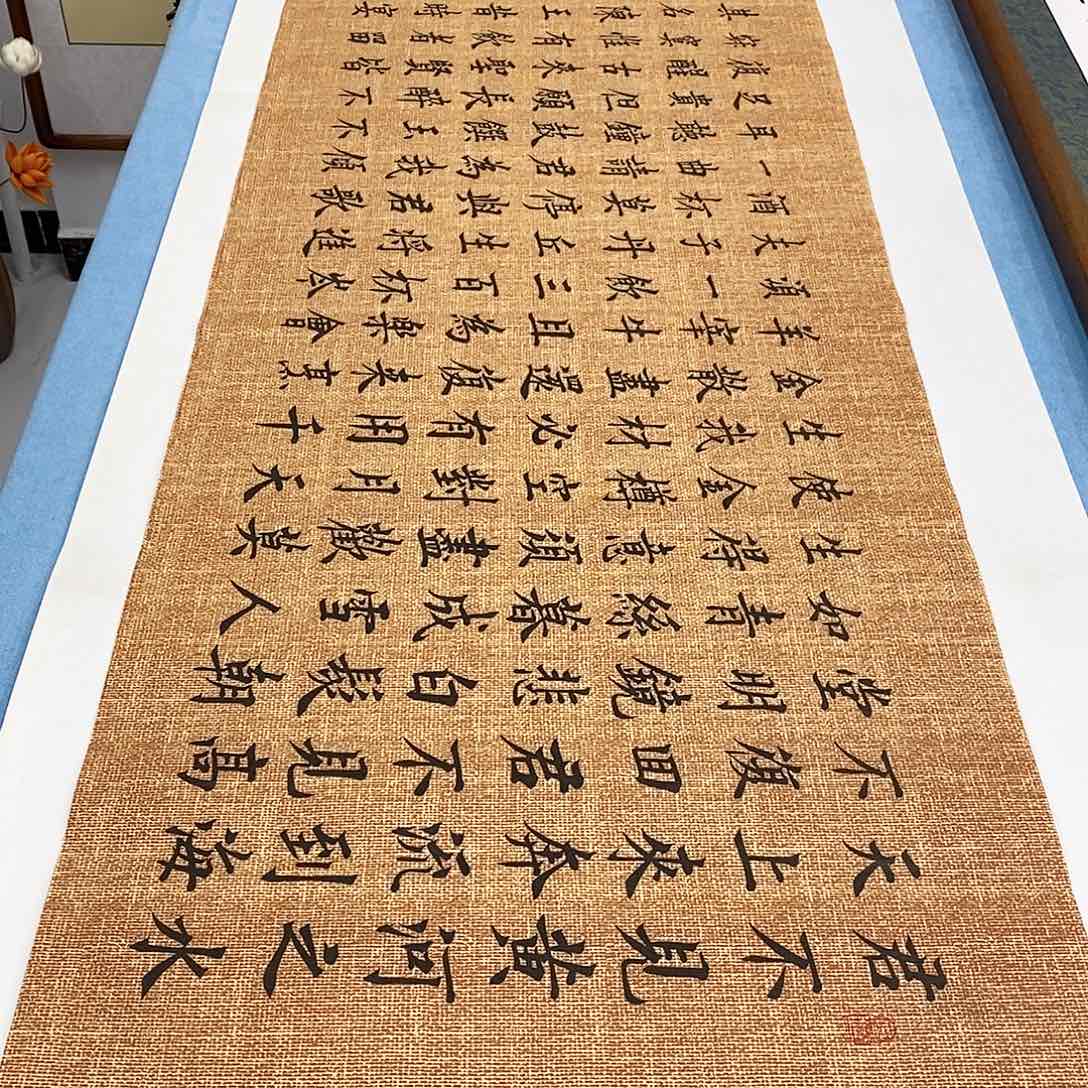 君不見黃河之水
天上來奔流到海
不復回君不見高
堂明鏡悲白髮朝
如青絲暮成雪人
生得意須盡歡莫
使金樽空對月天
生我材必有用千
金散盡還復來烹
羊宰牛且為樂會
須一飲三百杯岑
夫子丹丘生將進
酒杯莫停與君歌
一曲請君為我傾
耳聽鐘鼓饌玉不
足貴但願長醉不
復醒古來聖賢皆
寂寞惟有飲者留
其名陳王昔時宴